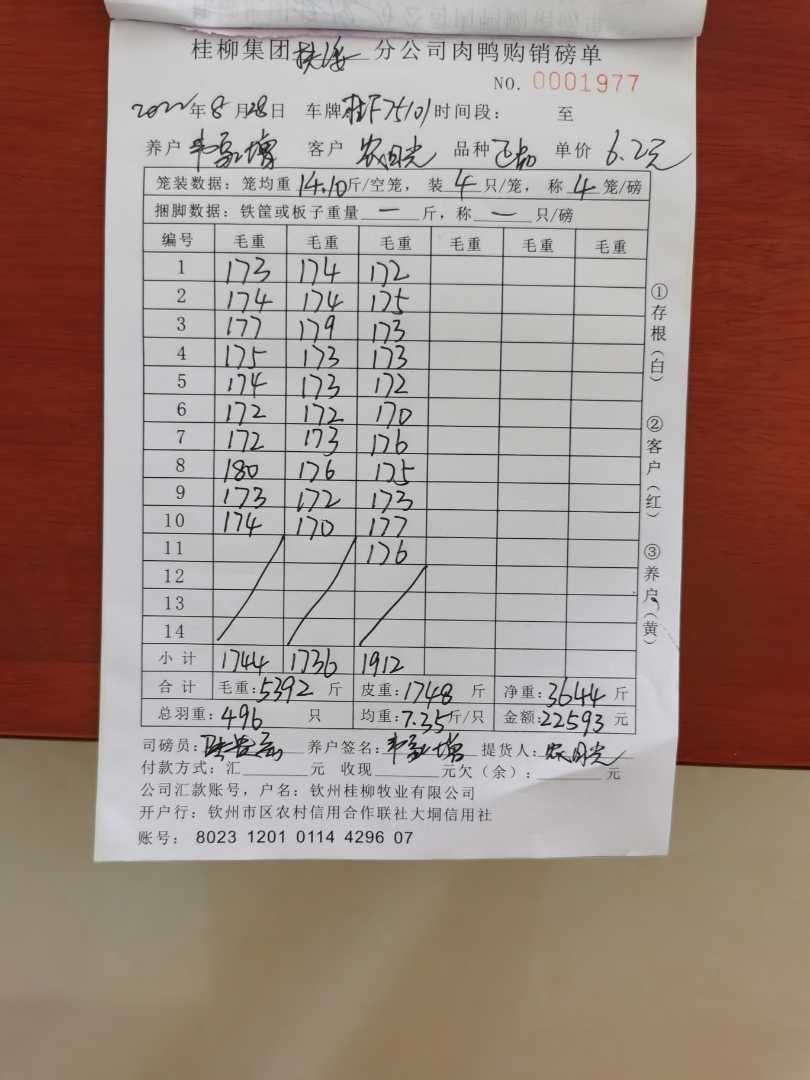 桂柳集团 分公司肉鸭购销磅单
NO. 0001977
2022年8月28日 车牌桂F75101时间段： 至
养户 客户 农国光 品种 正品 单价 6.2元
笼装数据：笼均重14.10斤/空笼，装4只/笼，称4笼/磅
捆脚数据：铁筐或板子重量一斤，称一只/磅
编号 毛重 毛重 毛重 毛重 毛重 毛重
1 173 174 172
2 174 174 175
3 177 179 173
4 175 173 173
5 174 173 172
6 172 172 170
7 172 173 176
8 180 176 175
9 173 172 173
10 174 170 177
11 176
12
13
14
小计 1744 1736 1912
合计 毛重:5392斤 皮重:1748斤 净重:3644斤
总羽重:496只 均重:7.35斤/只 金额:22593元
司磅员: 养户签名: 提货人:农国光
付款方式：汇______元 收现______元欠（余）:______元
公司汇款账号，户名：钦州桂柳牧业有限公司
开户行：钦州市区农村信用合作联社大垌信用社
账号： 8023 1201 0114 4296 07
①存根（白） ②客户（红） ③养户（黄）